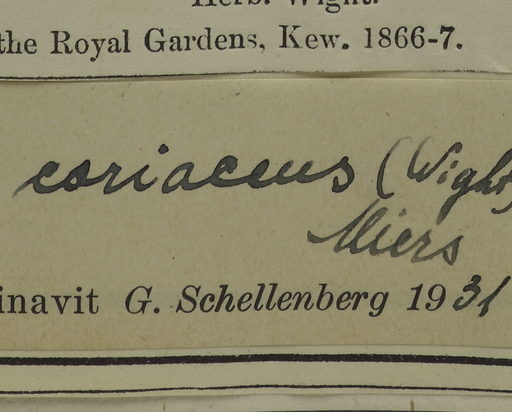 Herb. Wight.
the Royal Gardens, Kew. 1866-7.
coriaceus (Wight)
Miers
inavit G. Schellenberg 1931